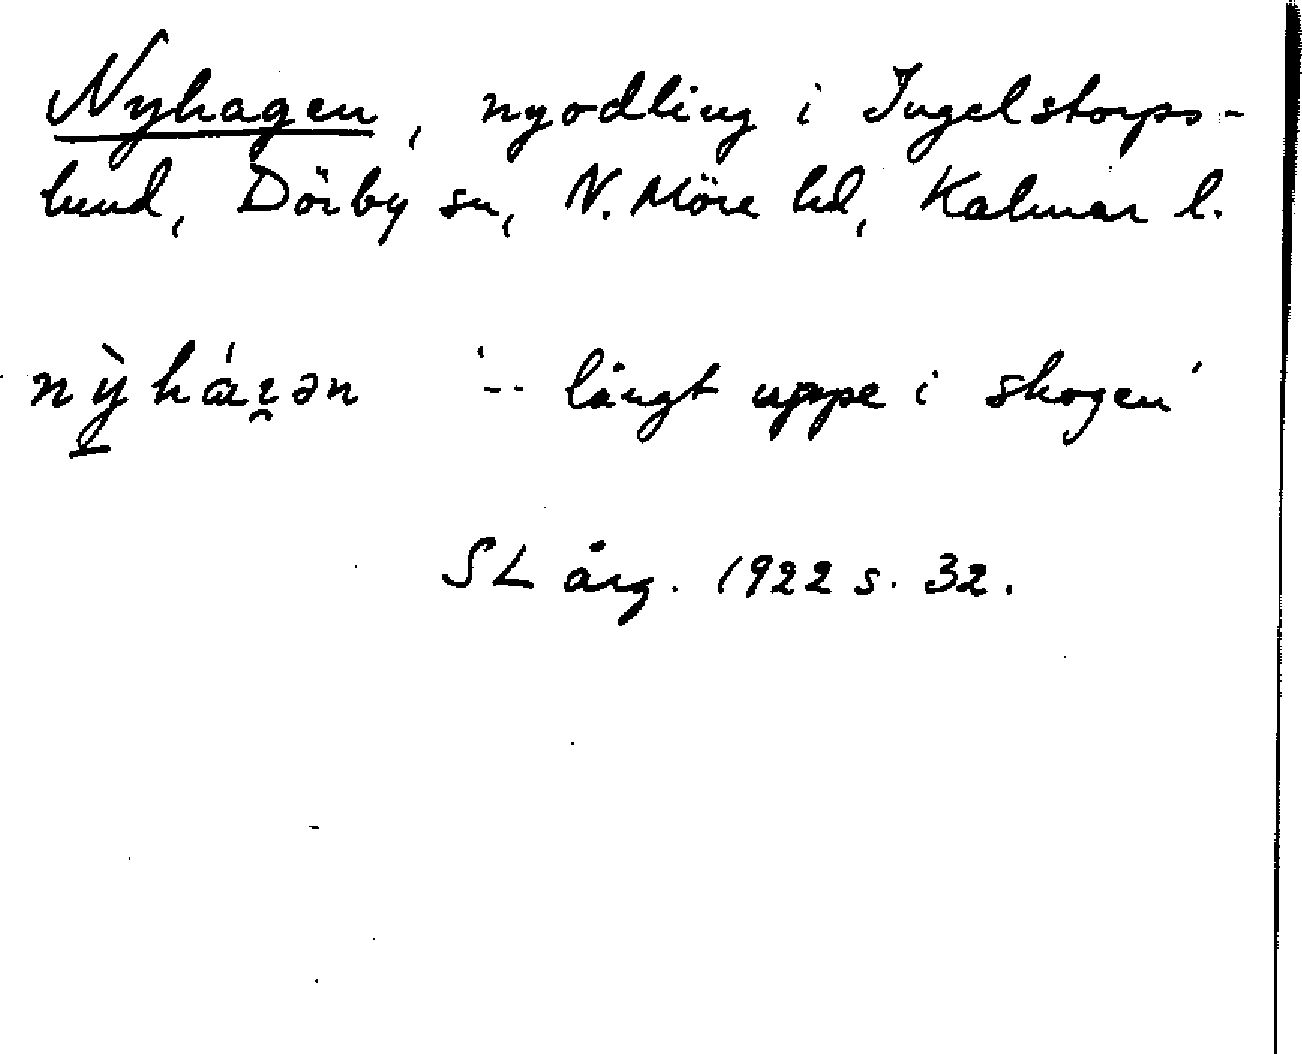 Nyhagen, nyodling i Ingelstorps-
lund, Dörby sn, N. Möre hd, Kalmar l.
'-- långt uppe i skogen'
SL årg. 1922 s. 32.